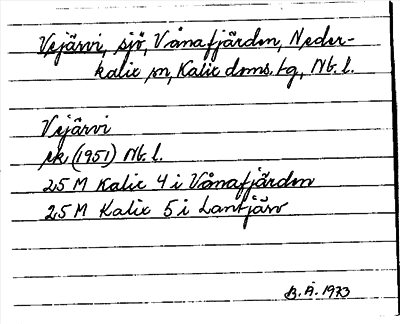 Vejärvi, sjö, Vånafjärden, Neder-
kalix sn, Kalix doms. tg, Nb. l.
Vejärvi
ek (1951) Nb. l.
25 M Kalix 4 i Vånafjärden
25 M Kalix 5 i Lantjärv
B. Å. 1973